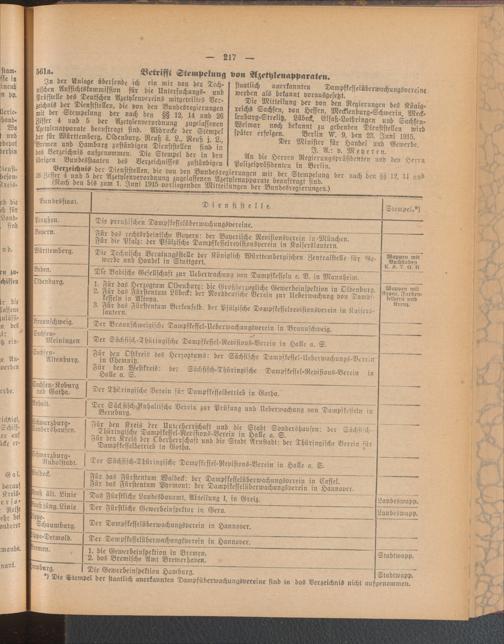 — 217 —
561a. Betrifft Stempelung von Azetylenapparaten.
In der Anlage übersende ich ein mir von der Tech-
nischen Aufsichtskommission für die Untersuchungs- und
Prüfstelle des Deutschen Azetylenvereins mitgeteiltes Ver-
zeichnis der Dienststellen, die von den Bundesregierungen
mit der Stempelung der nach den §§ 12, 14 und 26
Ziffer 4 und 5 der Azetylenverordnung zugelassenen
Azetylenapparate beauftragt sind. Abdrucke der Stempel
der für Württemberg, Oldenburg, Reuß ä. L., Reuß j. L.,
Bremen und Hamburg zuständigen Dienststellen sind in
das Verzeichnis aufgenommen. Die Stempel der in den
übrigen Bundesstaaten des Verzeichnisses zuständigen
staatlich anerkannten Dampfkesselüberwachungsvereine
werden als bekannt vorausgesetzt.
Die Mitteilung der von den Regierungen des König-
reichs Sachsen, von Hessen, Mecklenburg-Schwerin, Meck-
lenburg-Strelitz, Lübeck, Elsaß-Lothringen und Sachsen-
Weimar noch bekannt zu gebenden Dienststellen wird
später erfolgen. Berlin W. 9, den 23. Juni 1915.
Der Minister für Handel und Gewerbe.
J. A.: v. Meyeren.
An die Herren Regierungspräsidenten und den Herrn
Polizeipräsidenten in Berlin.
Verzeichnis der Dienststellen, die von den Bundesregierungen mit der Stempelung der nach den §§ 12, 14 und
26 Ziffer 4 und 5 der Azetylenverordnung zugelassenen Azetylenapparate beauftragt sind.
(Nach den bis zum 1. Juni 1915 vorliegenden Mitteilungen der Bundesregierungen.)
Bundesstaat. Dienststelle Stempel.*)
Preußen. Die preußischen Dampfkesselüberwachungsvereine.
Bayern. Für das rechtsrheinische Bayern: der Bayerische Revisionsverein in München.
Für die Pfalz: der Pfälzische Dampfkesselrevisionsverein in Kaiserslautern.
Württemberg. Die Technische Beratungsstelle der Königlich Württembergischen Zentralstelle für Ge-
werbe und Handel in Stuttgart.
Wappen mit
Buchstaben
Baden. Die Badische Gesellschaft zur Ueberwachung von Dampfkesseln e. V. in Mannheim.
Oldenburg. 1. Für das Herzogtum Oldenburg: die Großherzogliche Gewerbeinspektion in Oldenburg.
2. Für das Fürstentum Lübeck: der Norddeutsche Verein zur Ueberwachung von Dampf-
kesseln in Altona.
3. Für das Fürstentum Birkenfeld: der Pfälzische Dampfkesselrevisionsverein in Kaisers-
lautern.
Wappen mit
Braunschweig. Der Braunschweigische Dampfkessel-Ueberwachungsverein in Braunschweig.
Sachsen-
Meiningen Der Sächsisch-Thüringische Dampfkessel-Revisions-Verein in Halle a. S.
Sachsen-
Altenburg. Für den Ostkreis des Herzogtums: der Sächsische Dampfkessel-Ueberwachungs-Verein
in Chemnitz.
Für den Westkreis: der Sächsisch-Thüringische Dampfkessel-Revisions-Verein in
Halle a. S.
Sachsen-Koburg
und Gotha. Der Thüringische Verein für Dampfkesselbetrieb in Gotha.
Anhalt. Der Sächsisch-Anhaltische Verein zur Prüfung und Ueberwachung von Dampfkesseln in
Bernburg.
Schwarzburg-
Sondershausen. Für den Kreis der Unterherrschaft und die Stadt Sondershausen: der Sächsisch-
Thüringische Dampfkessel-Revisions-Verein in Halle a. S.
Für den Kreis der Oberherrschaft und die Stadt Arnstadt: der Thüringische Verein für
Dampfkesselbetrieb in Gotha.
Schwarzburg-
Rudolstadt. Der Sächsisch-Thüringische Dampfkessel-Revisions-Verein in Halle a. S.
Waldeck. Für das Fürstentum Waldeck: der Dampfkesselüberwachungsverein in Cassel.
Für das Fürstentum Pyrmont: der Dampfkesselüberwachungsverein in Hannover.
Reuß ält. Linie Das Fürstliche Landesbauamt, Abteilung I, in Greiz. Landeswapp.
Reuß jüng. Linie Der Fürstliche Gewerbeinspektor in Gera. Landeswapp.
Schaumburg. Der Dampfkesselüberwachungsverein in Hannover.
Lippe-Detmold. Der Dampfkesselüberwachungsverein in Hannover.
Bremen. 1. die Gewerbeinspektion in Bremen.
2. das Bremische Amt Bremerhaven.
Stadtwapp.
Hamburg. Die Gewerbeinspektion Hamburg. Stadtwapp.
*) Die Stempel der staatlich anerkannten Dampfüberwachungsvereine sind in das Verzeichnis nicht aufgenommen.